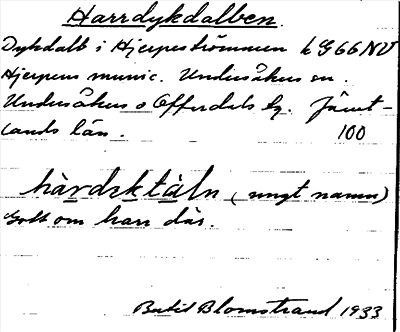 Harrdykdalben.
Dykdalb i Hjerpeströmmen k G66 NV
Hjerpens munic. Undersåkers sn.
Undersåkers o Offerdals tg. Jämt-
lands län. 100
hàrdɛktàln (ungt namn)
Gott om harr där.
Bertil Blomstrand 1933